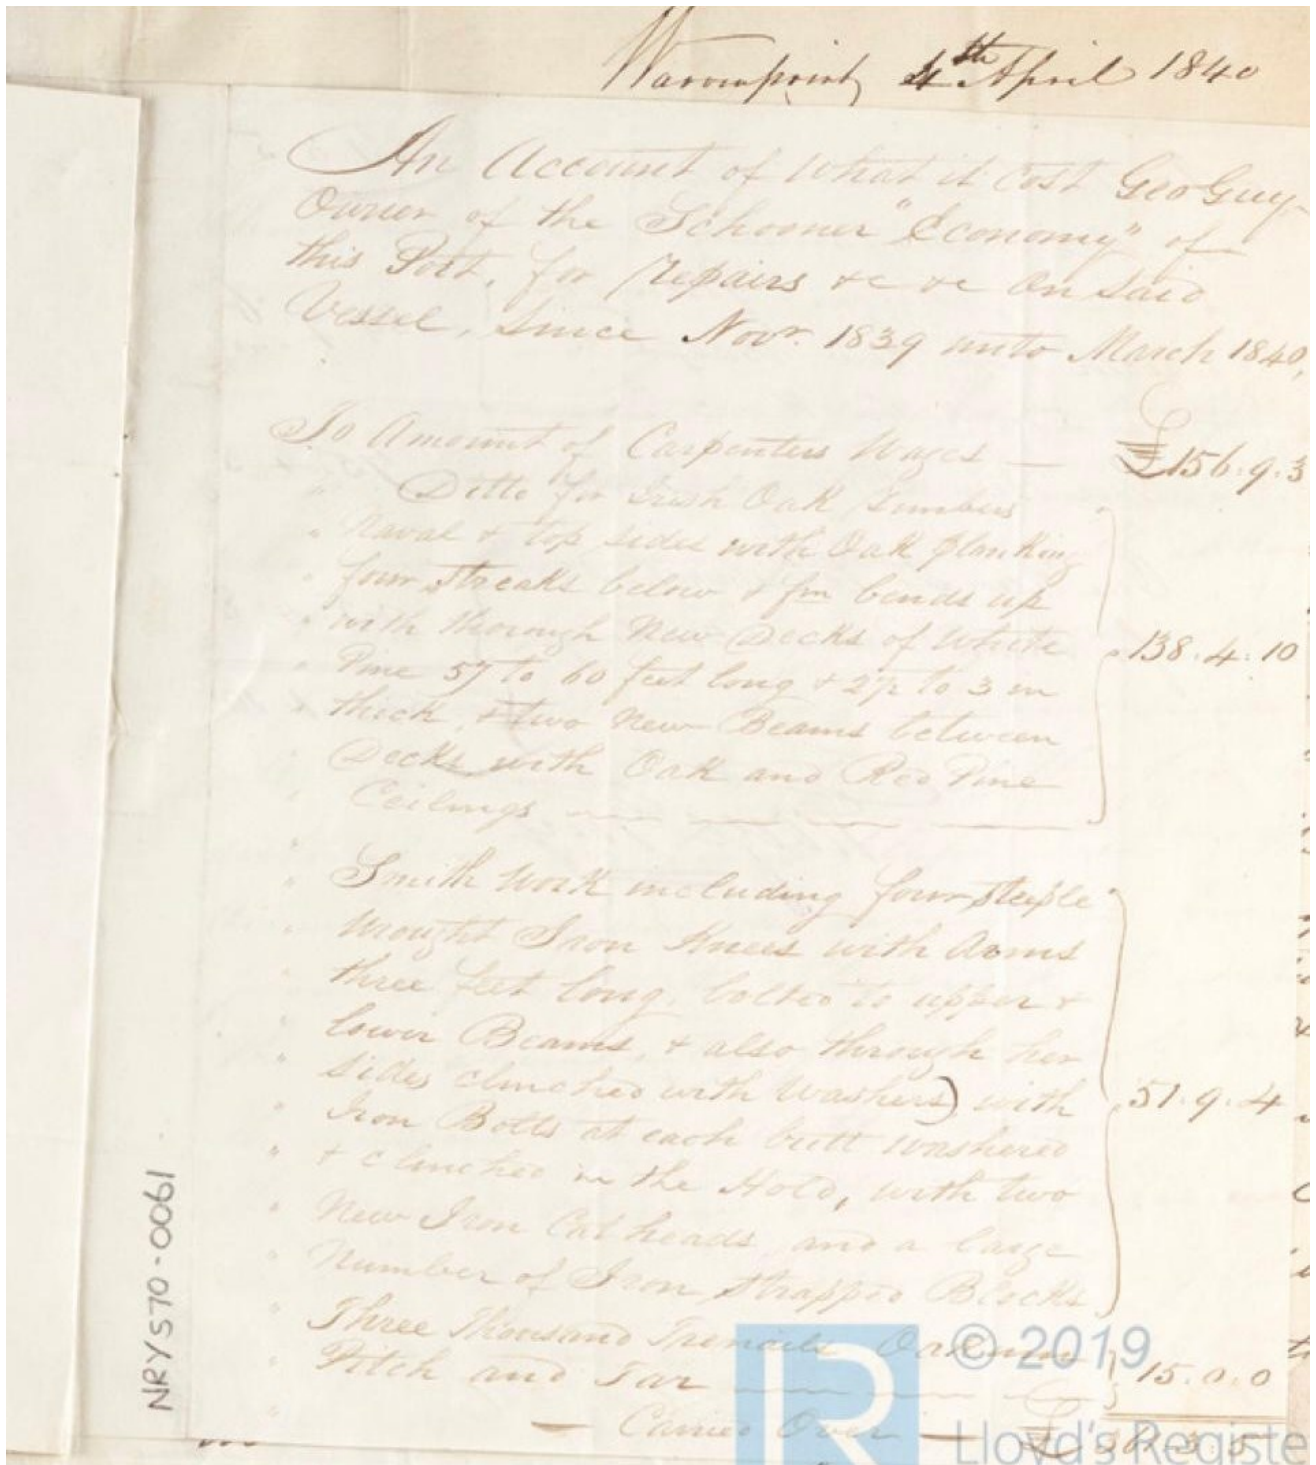 Warrenpoint 4th April 1840
An Account of What it Cost Geo Guy
Owner of the Schooner "Economy" of
this Port, for repairs &c &c On Said
Vessel, Since Novr. 1839 unto March 1840,
£
To Amount of Carpenters Wages — £156.9.3
" Ditto for Irish Oak Timbers
" Naval & top sides with Oak planking
" four Streaks below & fm bends up
" with thorough New Decks of White 138.4.10
" Pine 57 to 60 feet long & 2½ to 3 in
" thick, & two New Beams between
" Decks with Oak and Red Pine
" Ceilings
" Smith Work including four Steeple
" Wrought Iron Knees with Arms
" three feet long, bolted to upper &
" lower Beams, & also through her
" sides clinched with Washers) with 51.9.4
" Iron Bolts at each butt washered
" & clinched in the Hold, with two
" New Iron Cat heads, and a large
" Number of Iron Strapped Blocks
" Three Thousand Trenails Oakum
" Pitch and Tar 15.0.0
" — Carried Over — £361.3.5
NRY570-0061
© 2019
Lloyd's Registe